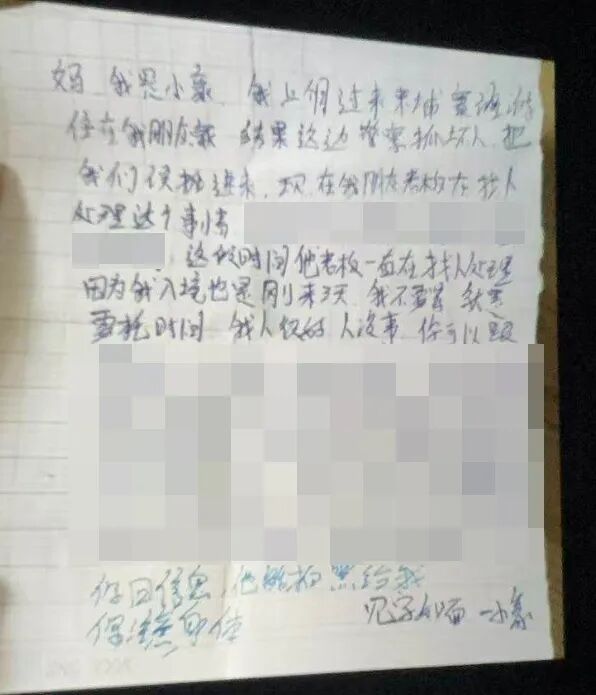 妈 我是小豪 我上个月过来柬埔寨旅游
住在我朋友家 结果这边警察抓坏人 把
我们误抓进来, 现在我朋友老板在找人
处理这个事情
这段时间他老板一直在找人处理
因为我入境也是刚来3天 我不要紧 就是
要耗时间 我人没事 你可以跟
你回信息, 他能拍照给我
保注意身体
见字如面 一小豪